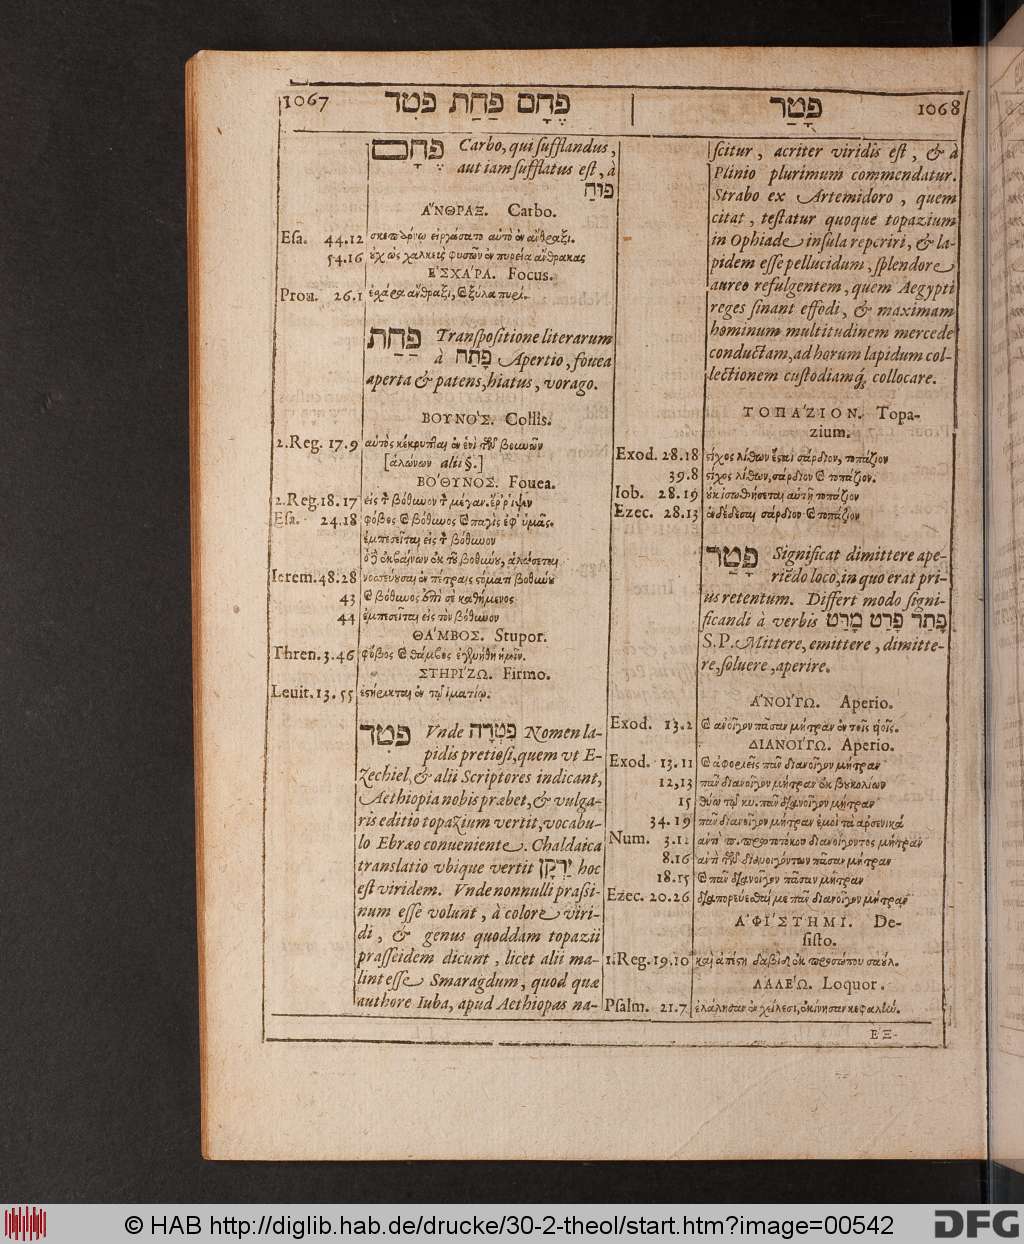 1067
פֶּחָם פַּחַת פטד
פָּטַר
1068
פֶּחָם Carbo, qui sufflandus,
aut iam sufflatus est, à
פוּחַ
ἌΝΘΡΑΞ. Carbo.
Esa. 44.12 αὐτὸ ἐν ἄνθραξι.
54.16 οὐχ ὡς χαλκεὺς φυσῶν ἐν πυρεία ἄνθρακας
ἘΣΧΆΡΑ. Focus.
Prou. 26.1 ἐσχάρα ἄνθραξι, καὶ ξύλα πυρί.
פַּחַת Transpositione literarum
à פָּתַח Apertio, fouea
aperta & patens, hiatus, vorago.
ΒΟΥΝΌΣ. Collis.
2. Reg. 17.9 αὐτὸς κέκρυπται ἐν ἑνὶ τῶν βουνῶν
[ἁλώνων alii §.]
ΒΌΘΥΝΟΣ. Fouea.
2. Reg. 18.17 εἰς τὸν βόθυνον τὸν μέγαν.
Esa. 24.18 φόβος καὶ βόθυνος καὶ παγὶς ἐφ' ὑμᾶς.
ἐμπεσεῖται εἰς τὸν βόθυνον
ἐκ τοῦ βοθύνου, ἁλώσεται
Ierem. 48.28 ἐν πέτραις στόματι βοθύνου
43 καὶ βόθυνος ἐπὶ σὲ καθήμενος
44 ἐμπεσεῖται εἰς τὸν βόθυνον
ΘΆΜΒΟΣ. Stupor.
Thren. 3.46 φόβος καὶ θάμβος ἐγενήθη ἡμῖν.
ΣΤΗΡΊΖΩ. Firmo.
Leuit. 13.55 ἐστήρικται ἐν τῷ ἱματίῳ.
פטד Vnde פִּטְדָה Nomen la-
pidis pretiosi, quem vt E-
zechiel, & alii Scriptores indicant,
Aethiopia nobis præbet, & vulga-
ris editio topazium vertit, vocabu-
lo Ebræo conueniente. Chaldaica
translatio vbique vertit יַרְקָן hoc
est viridem. Vnde nonnulli prassi-
num esse volunt, à colore viri-
di, & genus quoddam topazii
prasseidem dicunt, licet alii ma-
lint esse Smaragdum, quod quæ
authore Iuba, apud Aethiopas na-
scitur, acriter viridis est, & à
Plinio plurimum commendatur.
Strabo ex Artemidoro, quem
citat, testatur quoque topazium
in Ophiade insula reperiri, & la-
pidem esse pellucidum, splendore
aureo refulgentem, quem Aegypti
reges sinant effodi, & maximam
hominum multitudinem mercede
conductam, ad horum lapidum col-
lectionem custodiamq́; collocare.
ΤΟΠΆΖΙΟΝ. Topa-
zium.
Exod. 28.18 στίχος λίθων ἔσται σάρδιον, τοπάζιον
39.8 στίχος λίθων, σάρδιον καὶ τοπάζιον.
Iob. 28.19 οὐκ ἰσωθήσεται αὐτῇ τοπάζιον
Ezec. 28.13 ἐνδέδεσαι σάρδιον καὶ τοπάζιον
פָּטַר Significat dimittere ape-
riēdo locō, in quo erat pri-
us retentum. Differt modo signi-
ficandi à verbis פָּתַר פָּרַט מָרַט
S.P. Mittere, emittere, dimitte-
re, soluere, aperire.
ἈΝΟΊΓΩ. Aperio.
Exod. 13.2 καὶ ἀνοῖγον πᾶσαν μήτραν ἐν τοῖς υἱοῖς.
ΔΙΑΝΟΊΓΩ. Aperio.
Exod. 13.11 καὶ ἀφοριεῖς πᾶν διανοῖγον μήτραν
12,13 πᾶν διανοῖγον μήτραν ἐκ βουκολίων
15 θύω τῷ κυ. πᾶν διανοῖγον μήτραν
34.19 πᾶν διανοῖγον μήτραν ἐμοὶ τὰ ἀρσενικά
Num. 3.12 ἀντὶ π. πρωτοτόκου διανοίγοντος μήτραν
8.16 ἀντὶ τῶν διανοιγόντων πᾶσαν μήτραν
18.15 καὶ πᾶν διανοῖγον πᾶσαν μήτραν
Ezec. 20.26 διαπορεύεσθαί με πᾶν διανοῖγον μήτραν
ἈΦΊΣΤΗΜΙ. De-
sisto.
1. Reg. 19.10 καὶ ἀπέστη δαβὶδ ἐκ προσώπου σαούλ.
ΛΑΛΈΩ. Loquor.
Psalm. 21.7 ἐλάλησαν ἐν χείλεσι, ἐκίνησαν κεφαλήν.
ΕΞ-
© HAB http://diglib.hab.de/drucke/30-2-theol/start.htm?image=00542
DFG